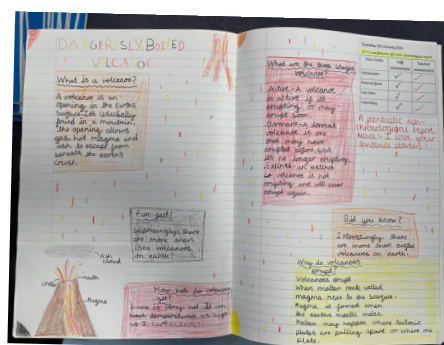 DANGERISLY BOILED
VOLCANOE
What is a volcano?
A volcano is an
opening in the Earths
surface. Its usually
found in a mountain,
the opening allows
gas, hot magma and
ash to escape from
beneath the earths
crust.
Fun fact!
Surprisingly there
are more than
1500 volcanoes
on earth!
Ash
cloud
Magma
How hot do volcanoes
get?
Lava is very hot. It can
reach temperatures as high
as
What are the three stages
volcanoe?
Active - A volcano
is active if its
erupting or may
erupt soon.
Dormant - A dormant
volcanoe is one
that may have
erupted before, but
its no longer erupting.
Extinct - an extinct
volcanoe is not
erupting and will never
erupt again.
A fantastic non-
chronological report
I love your
sentence starters!
Did you know?
Interestingly, there
are more than
volcanoes on earth.
Why do volcanoes
erupt?
Volcanoes erupt
when molten rock called
magma rises to the surface.
Magma is formed when
the earths mantle melts.
Melton may happen where tectonic
plates are pulling apart or where one
plate.